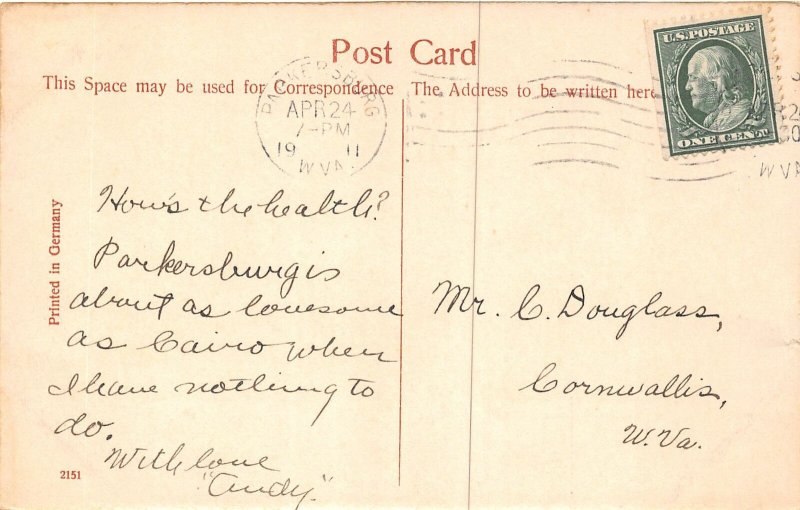 Post Card
This Space may be used for Correspondence
The Address to be written here
U.S. POSTAGE
ONE CENT
PARKERSBURG
APR 24
7-PM
19 11
W.VA.
How's the health?
Parkersburg is
about as lonesome
as Cairo when
I have nothing to
do.
With love
"Andy."
Mr. C. Douglass,
Cornwallis,
W. Va.
Printed in Germany
2151
W VA